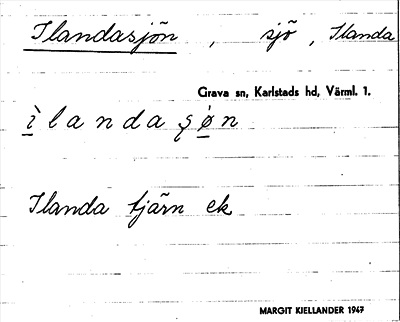 Ilandasjön , sjö , Ilanda
Grava sn, Karlstads hd, Värml. 1.
ìlanda ʂøn
Ilanda tjärn ek
MARGIT KJELLANDER 1947